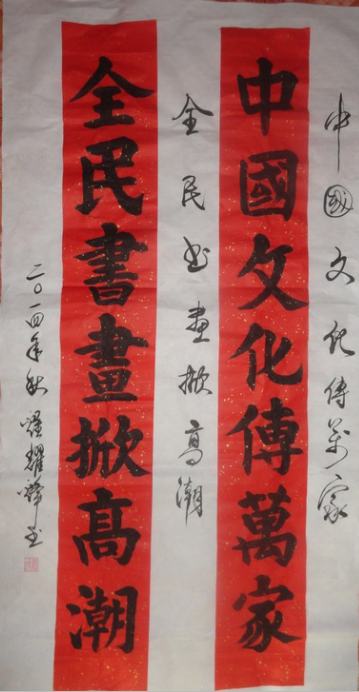 中國文化傳萬家
中國文化傳萬家
全民书畫掀高潮
全民書畫掀高潮
二〇一四年秋耀輝书